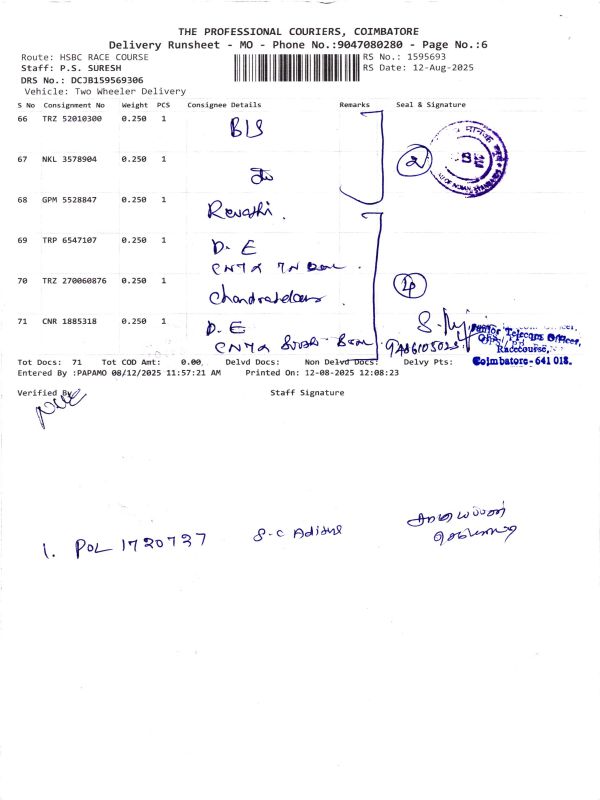 THE PROFESSIONAL COURIERS, COIMBATORE
Delivery Runsheet - MO - Phone No.:9047080280 - Page No.:6
Route: HSBC RACE COURSE
RS No.: 1595693
Staff: P.S. SURESH
RS Date: 12-Aug-2025
DRS No.: DCJB159569306
Vehicle: Two Wheeler Delivery
S No Consignment No Weight PCS Consignee Details Remarks Seal & Signature
66 TRZ 52010300 0.250 1 BIS
67 NKL 3578904 0.250 1
2
68 GPM 5528847 0.250 1 Revathi.
69 TRP 6547107 0.250 1 D. E
70 TRZ 270060876 0.250 1
4
71 CNR 1885318 0.250 1 D. E
Junior Telecom Officer,
Racecourse,
Coimbatore-641 018.
Tot Docs: 71 Tot COD Amt: 0.00, Delvd Docs: Non Delvd Docs: Delvy Pts:
Entered By :PAPAMO 08/12/2025 11:57:21 AM Printed On: 12-08-2025 12:08:23
Verified By
Staff Signature
1. POL 1720737